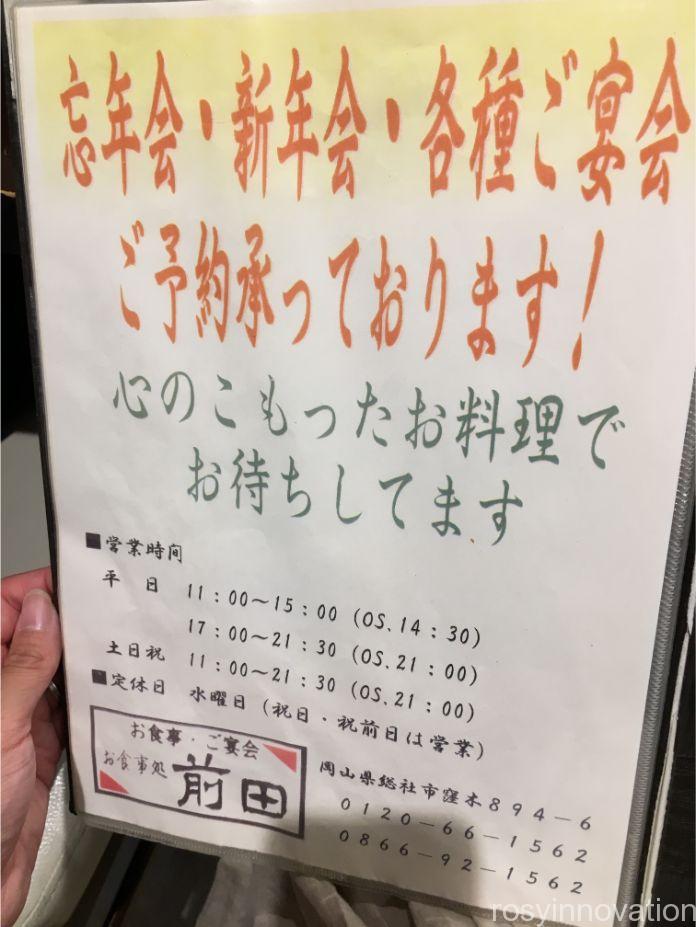 忘年会・新年会・各種ご宴会
ご予約承っております！
心のこもったお料理で
お待ちしてます
■営業時間
平　日　11：00～15：00（OS.14：30）
17：00～21：30（OS.21：00）
土日祝　11：00～21：30（OS.21：00）
■定休日　水曜日（祝日・祝前日は営業）
お食事・ご宴会
お食事処 前田
岡山県総社市窪木894－6
0120－66－1562
0866－92－1562
rosyinnovation